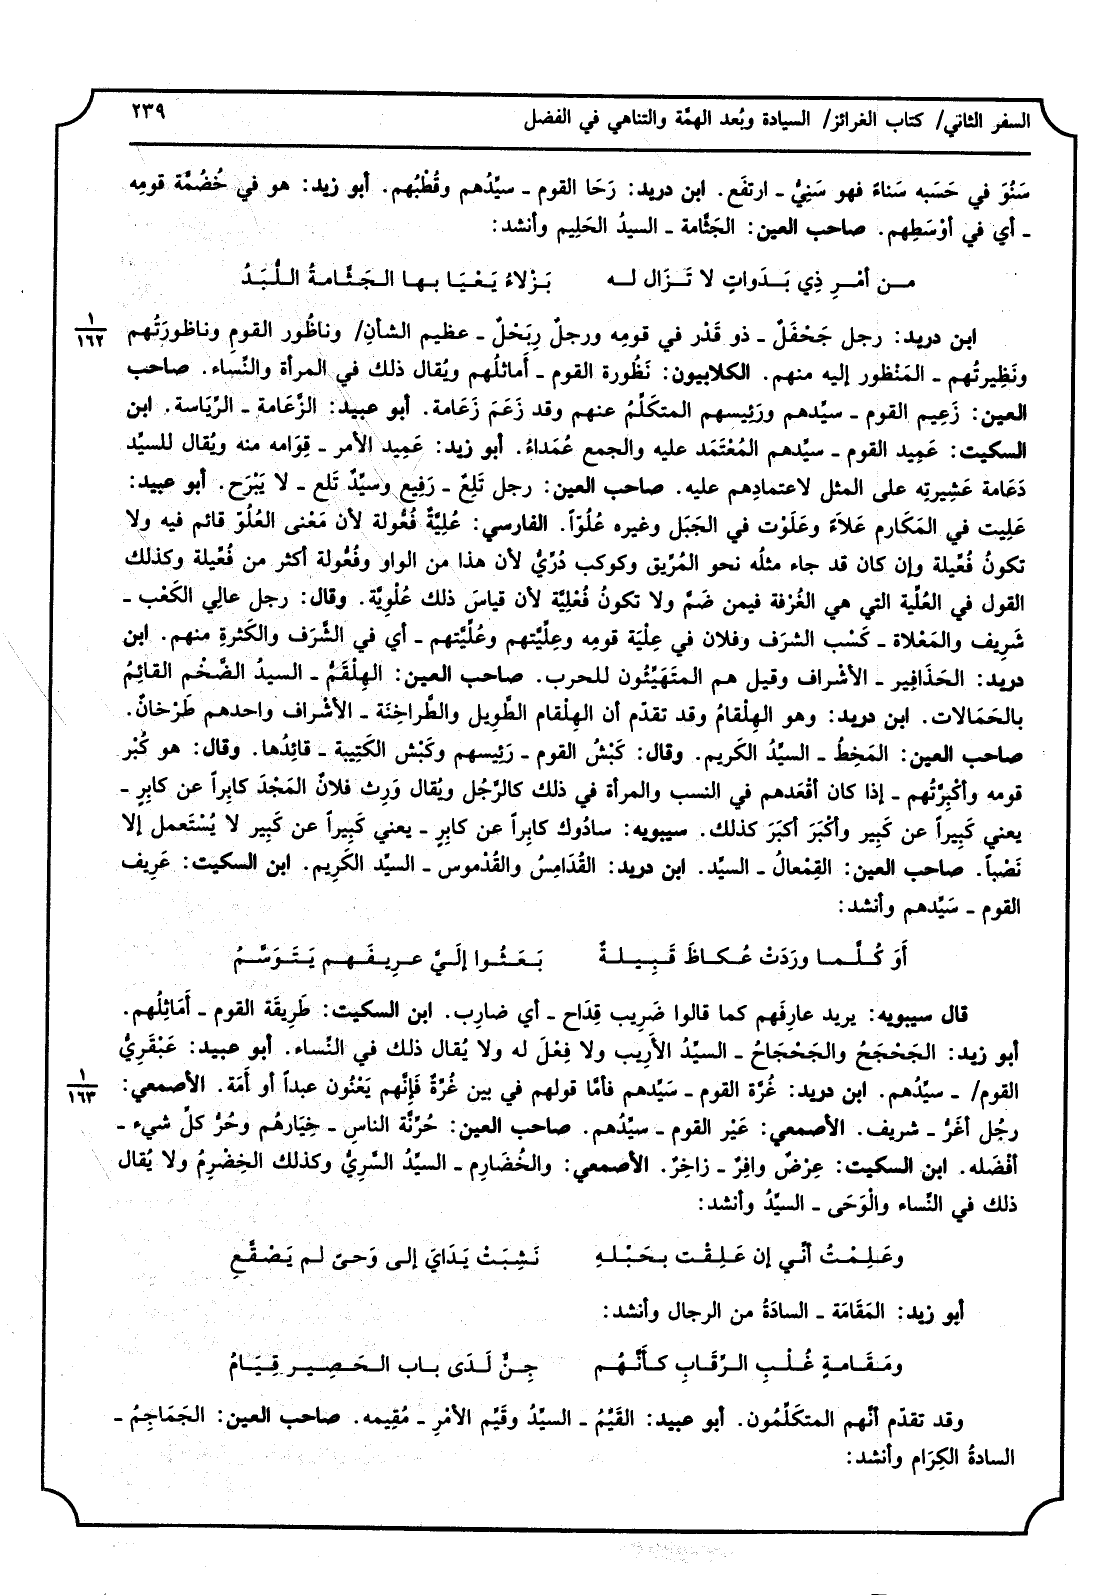 السفر الثاني/ كتاب الغرائز/ السيادة وبُعد الهمَّة والتناهي في الفضل ٢٣٩
سَنُوَ في حَسَبه سَناءً فهو سَنِيٌّ ـ ارتفَع. ابن دريد: رَحَا القوم ـ سيِّدُهم وقُطْبُهم. أبو زيد: هو في خُضُمَّة قومِه
ـ أي في أوْسَطِهم. صاحب العين: الجَثَّامة ـ السيدُ الحَلِيم وأنشد:
مـن أمْرِ ذِي بَـدَواتٍ لا تَـزَال لـه بَـزْلاءُ يَـعْيَا بـها الـجَـثَّـامـةُ الـلُّبَـدُ
ابن دريد: رجل جَحْفَلٌ ـ ذو قَدْر في قومِه ورجلٌ رِبَحْلٌ ـ عظيم الشأنِ/ وناظُور القومِ وناظورَتُهم
١
١٦٢
ونَظِيرتُهم ـ المَنْظور إليه منهم. الكلابيون: نَظُورة القوم ـ أماثلُهم ويُقال ذلك في المرأة والنِّساء. صاحب
العين: زَعِيم القوم ـ سيِّدهم ورَئِيسهم المتكلِّمُ عنهم وقد زَعَمَ زَعَامة. أبو عبيد: الزَّعَامة ـ الرِّيَاسة. ابن
السكيت: عَمِيد القوم ـ سيِّدهم المُعْتَمَد عليه والجمع عُمَداءُ. أبو زيد: عَمِيد الأمر ـ قِوَامه منه ويُقال للسيِّد
دَعَامة عَشِيرتِه على المثل لاعتمادِهم عليه. صاحب العين: رجل تَلِعٌ ـ رَفِيع وسيِّدٌ تَلع ـ لا يَبْرَح. أبو عبيد:
عَلِيت في المَكَارم عَلَاءً وعَلَوْت في الجَبَل وغيره عُلُوّاً. الفارسي: عُلِيَّةٌ فُعُّولة لأن مَعْنى العُلُوّ قائم فيه ولا
تكونُ فُعِّيلة وإن كان قد جاء مثلُه نحو المُرِّيق وكوكب دُرِّيٌّ لأن هذا من الواو وفُعُّولة أكثر من فُعِّيلة وكذلك
القول في العُلِّية التي هي الغُرْفة فيمن ضَمَّ ولا تكونُ فُعْلِيَّة لأن قياسَ ذلك عُلْوِيَّة. وقال: رجل عالِي الكَعْب ـ
شَرِيف والمَعْلاة ـ كَسْب الشرَف وفلان في عِلْيَة قومِه وعِلِّيَّتهم وعُلِّيَّتهم ـ أي في الشَّرَف والكَثرةِ منهم. ابن
دريد: الحَذَافِير ـ الأشْراف وقيل هم المتَهَيِّئُون للحرب. صاحب العين: الهِلْقَمُّ ـ السيدُ الضَّخْم القائِمُ
بالحَمَالات. ابن دريد: وهو الهِلْقامُ وقد تقدّم أن الهِلْقام الطَّوِيل والطَّراخِنَة ـ الأشْراف واحدهم طَرْخانٌ.
صاحب العين: المَخِطُ ـ السيدُ الكَرِيم. وقال: كَبْشُ القوم ـ رَئِيسهم وكَبْش الكَتِيبة ـ قائِدُها. وقال: هو كُبْر
قومه وأكْبِرَّتُهم ـ إذا كان أقْعَدهم في النسب والمرأة في ذلك كالرَّجُل ويُقال وَرِث فلانٌ المَجْدَ كابِراً عن كابِرٍ ـ
يعني كَبِيراً عن كَبِير وأكْبَرَ أكبَرَ كذلك. سيبويه: سادُوك كابِراً عن كابِرٍ ـ يعني كَبِيراً عن كَبِير لا يُسْتَعمل إلا
نَصْباً. صاحب العين: القِمْعالُ ـ السيِّد. ابن دريد: القُدَامِسُ والقُدْموس ـ السيِّد الكَرِيم. ابن السكيت: عَرِيف
القوم ـ سَيِّدهم وأنشد:
أَوَ كُـلَّـمـا وردَتْ عُـكـاظَ قَـبِـيـلـةٌ بَـعَـثُـوا إلَيَّ عـريـفَـهـم يَـتَـوَسَّـمُ
قال سيبويه: يريد عارِفَهم كما قالوا ضَرِيب قِدَاح ـ أي ضارِب. ابن السكيت: طَرِيقَة القوم ـ أَمَاثِلُهم.
أبو زيد: الجَحْجَحُ والجَحْجَاحُ ـ السيِّدُ الأَرِيب ولا فِعْلَ له ولا يُقال ذلك في النِّساء. أبو عبيد: عَبْقَرِيُّ
القوم/ ـ سيِّدُهم. ابن دريد: غُرَّة القوم ـ سَيِّدهم فأمَّا قولهم في بين غُرَّةٌ فَإنَّهم يَعْنُون عبداً أو أَمَة. الأصمعي:
١
١٦٣
رجُل أغَرُّ ـ شريف. الأصمعي: عَيْر القوم ـ سيِّدُهم. صاحب العين: حُرِّيَّة الناسِ ـ خِيَارهُم وحُرُّ كلِّ شيء ـ
أفْضَله. ابن السكيت: عِرْضٌ وافِرٌ ـ زاخِرٌ. الأصمعي: والخُضَارِم ـ السيِّدُ السَّرِيُّ وكذلك الخِضْرِمُ ولا يُقال
ذلك في النِّساء والْوَحَى ـ السيِّدُ وأنشد:
وعَـلِـمْـتُ أنِّـي إن عَـلِـقْـت بـحَـبْـلـهِ نَـشِـبَـتْ يَـدَايَ إلـى وَحـىً لـم يَـصْـقَـعِ
أبو زيد: المَقَامَة ـ السادَةُ من الرجال وأنشد:
ومَـقَـامـةٍ غُـلْـبِ الـرِّقَـابِ كـأنَّـهُـم جِـنٌّ لَـدَى بـاب الـحَـصِـيـر قِـيَـامُ
وقد تقدّم أنَّهم المتكلِّمُون. أبو عبيد: القَيِّمُ ـ السيِّدُ وقَيِّم الأمْرِ ـ مُقِيمه. صاحب العين: الجَمَاجِمُ ـ
السادةُ الكِرَام وأنشد: